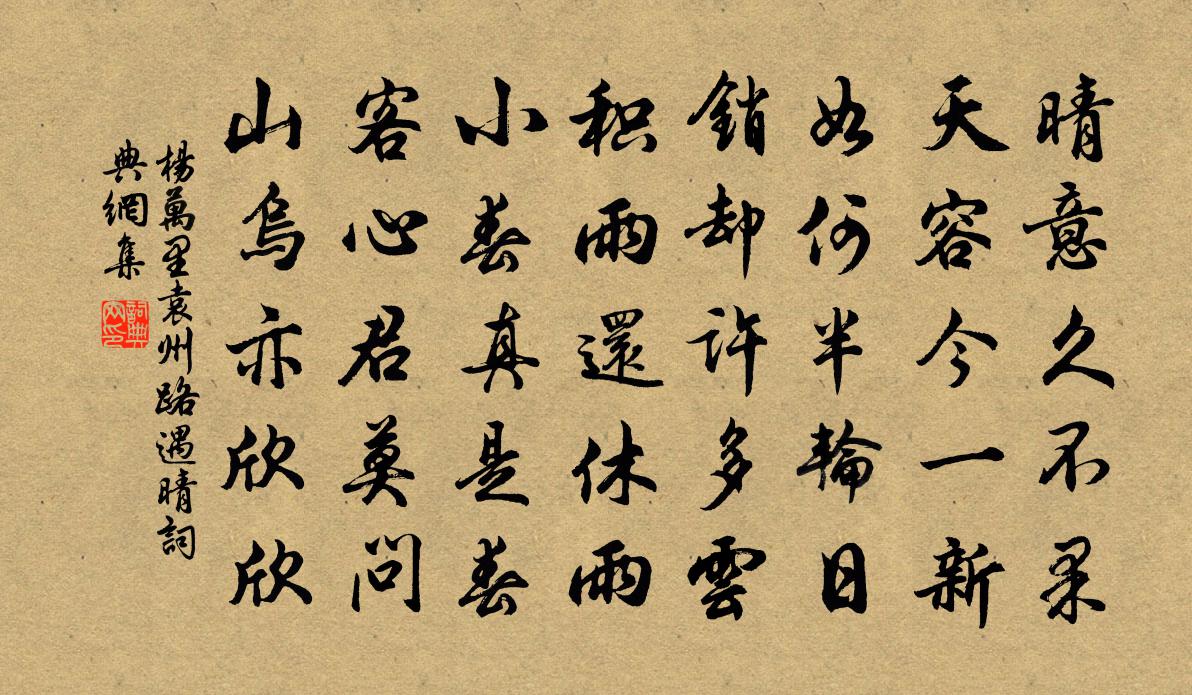 晴意久不果
天容今一新
如何半輪日
銷却許多雲
积雨還休雨
小春真是春
客心君莫問
山烏亦欣欣
楊萬里袁州路遇晴詞
典網集
詞典网印